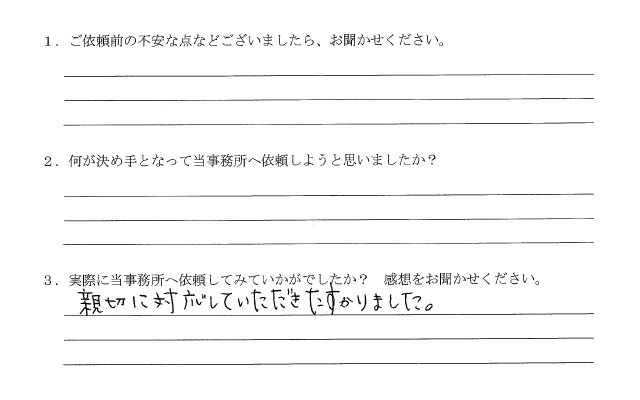 １．ご依頼前の不安な点などございましたら、お聞かせください。
２．何が決め手となって当事務所へ依頼しようと思いましたか？
３．実際に当事務所へ依頼してみていかがでしたか？　感想をお聞かせください。
親切に対応していただきたすかりました。